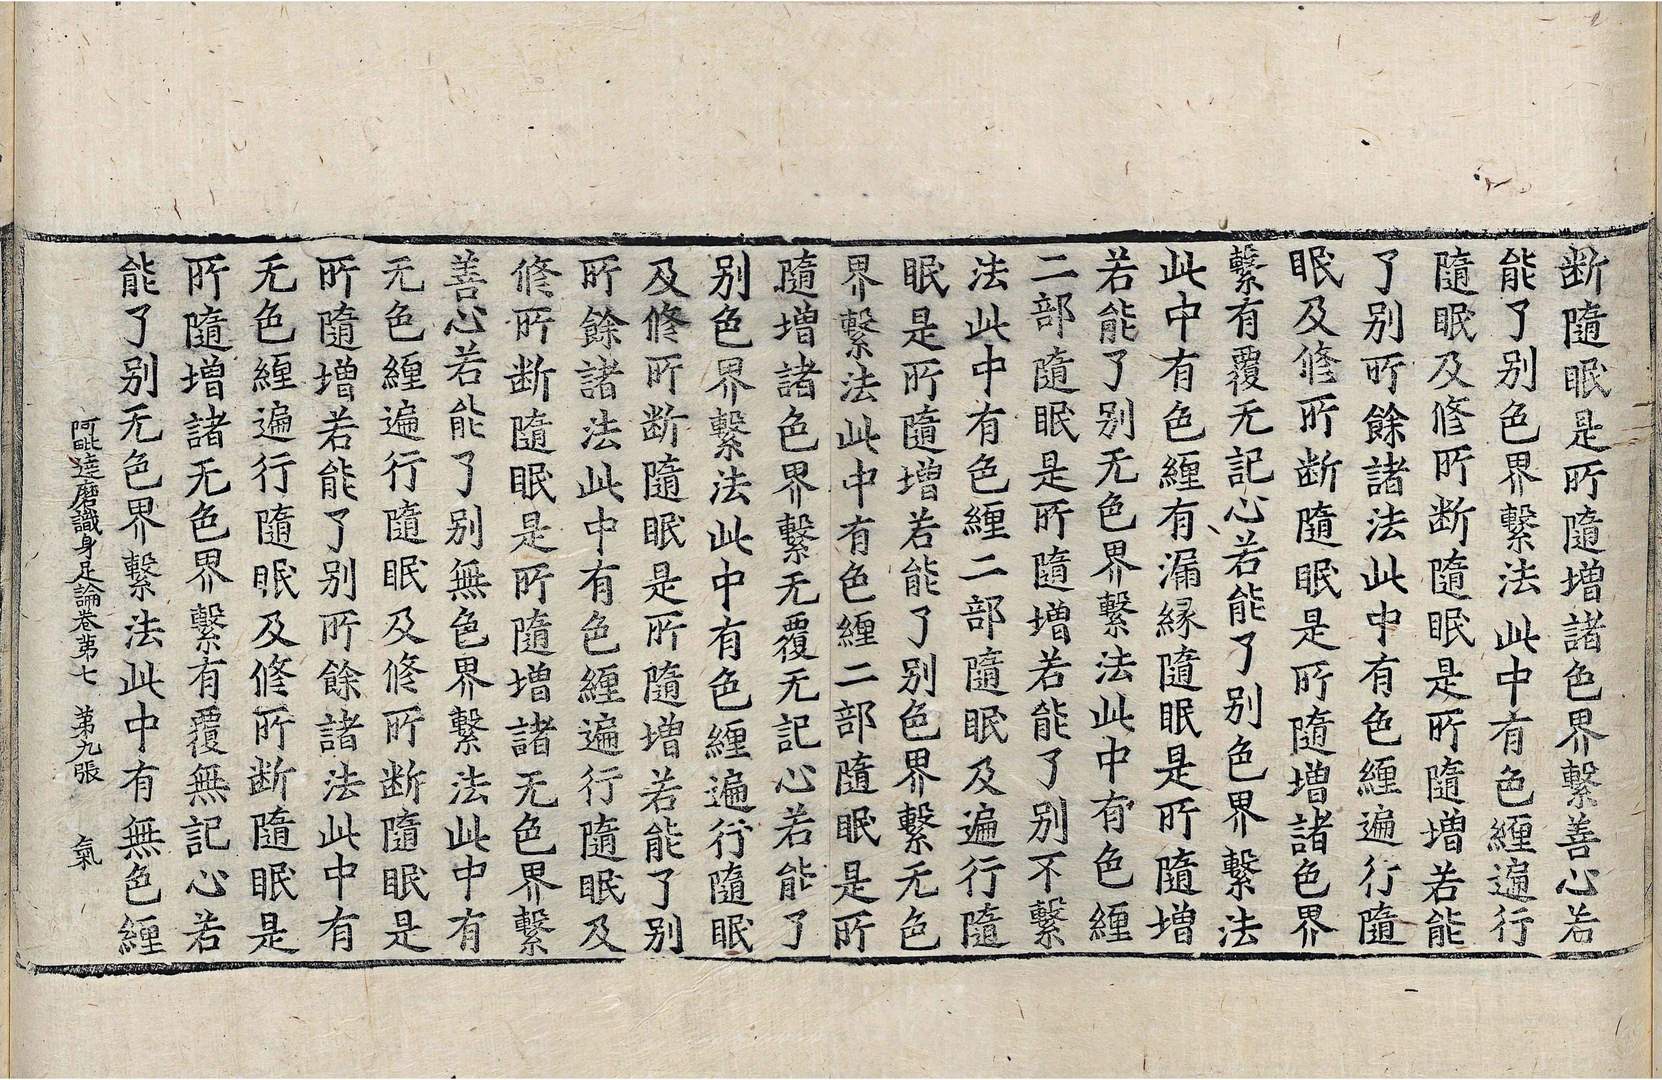 断隨眠是所隨增諸色界繫善心若
能了别色界繫法此中有色纏遍行
隨眠及修所断隨眠是所隨增若能
了别所餘諸法此中有色纏遍行隨
眠及修所断隨眠是所隨增諸色界
繫有覆无記心若能了别色界繫法
此中有色纏有漏縁隨眠是所隨增
若能了别无色界繫法此中有色纏
二部隨眠是所隨增若能了别不繫
法此中有色纏二部隨眠及遍行隨
眠是所隨增若能了别色界繫无色
界繫法此中有色纏二部隨眠是所
隨增諸色界繫无覆无記心若能了
别色界繫法此中有色纏遍行隨眠
及修所断隨眠是所隨增若能了别
所餘諸法此中有色纏遍行隨眠及
修所断隨眠是所隨增諸无色界繫
善心若能了别無色界繫法此中有
无色纏遍行隨眠及修所断隨眠是
所隨增若能了别所餘諸法此中有
无色纏遍行隨眠及修所断隨眠是
所隨增諸无色界繫有覆無記心若
能了别无色界繫法此中有無色纏
阿毗達磨識身足論卷第七 第九張 氣